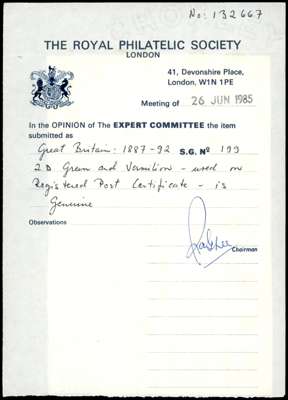 No: 132667
THE ROYAL PHILATELIC SOCIETY
LONDON
41, Devonshire Place,
London, W1N 1PE
Meeting of 26 JUN 1985
In the OPINION of The EXPERT COMMITTEE the item
submitted as
Great Britain: 1887-92 S.G. Nº 199
2D Green and Vermilion - used on
Registered Post Certificate - is
Genuine
Observations
Chairman